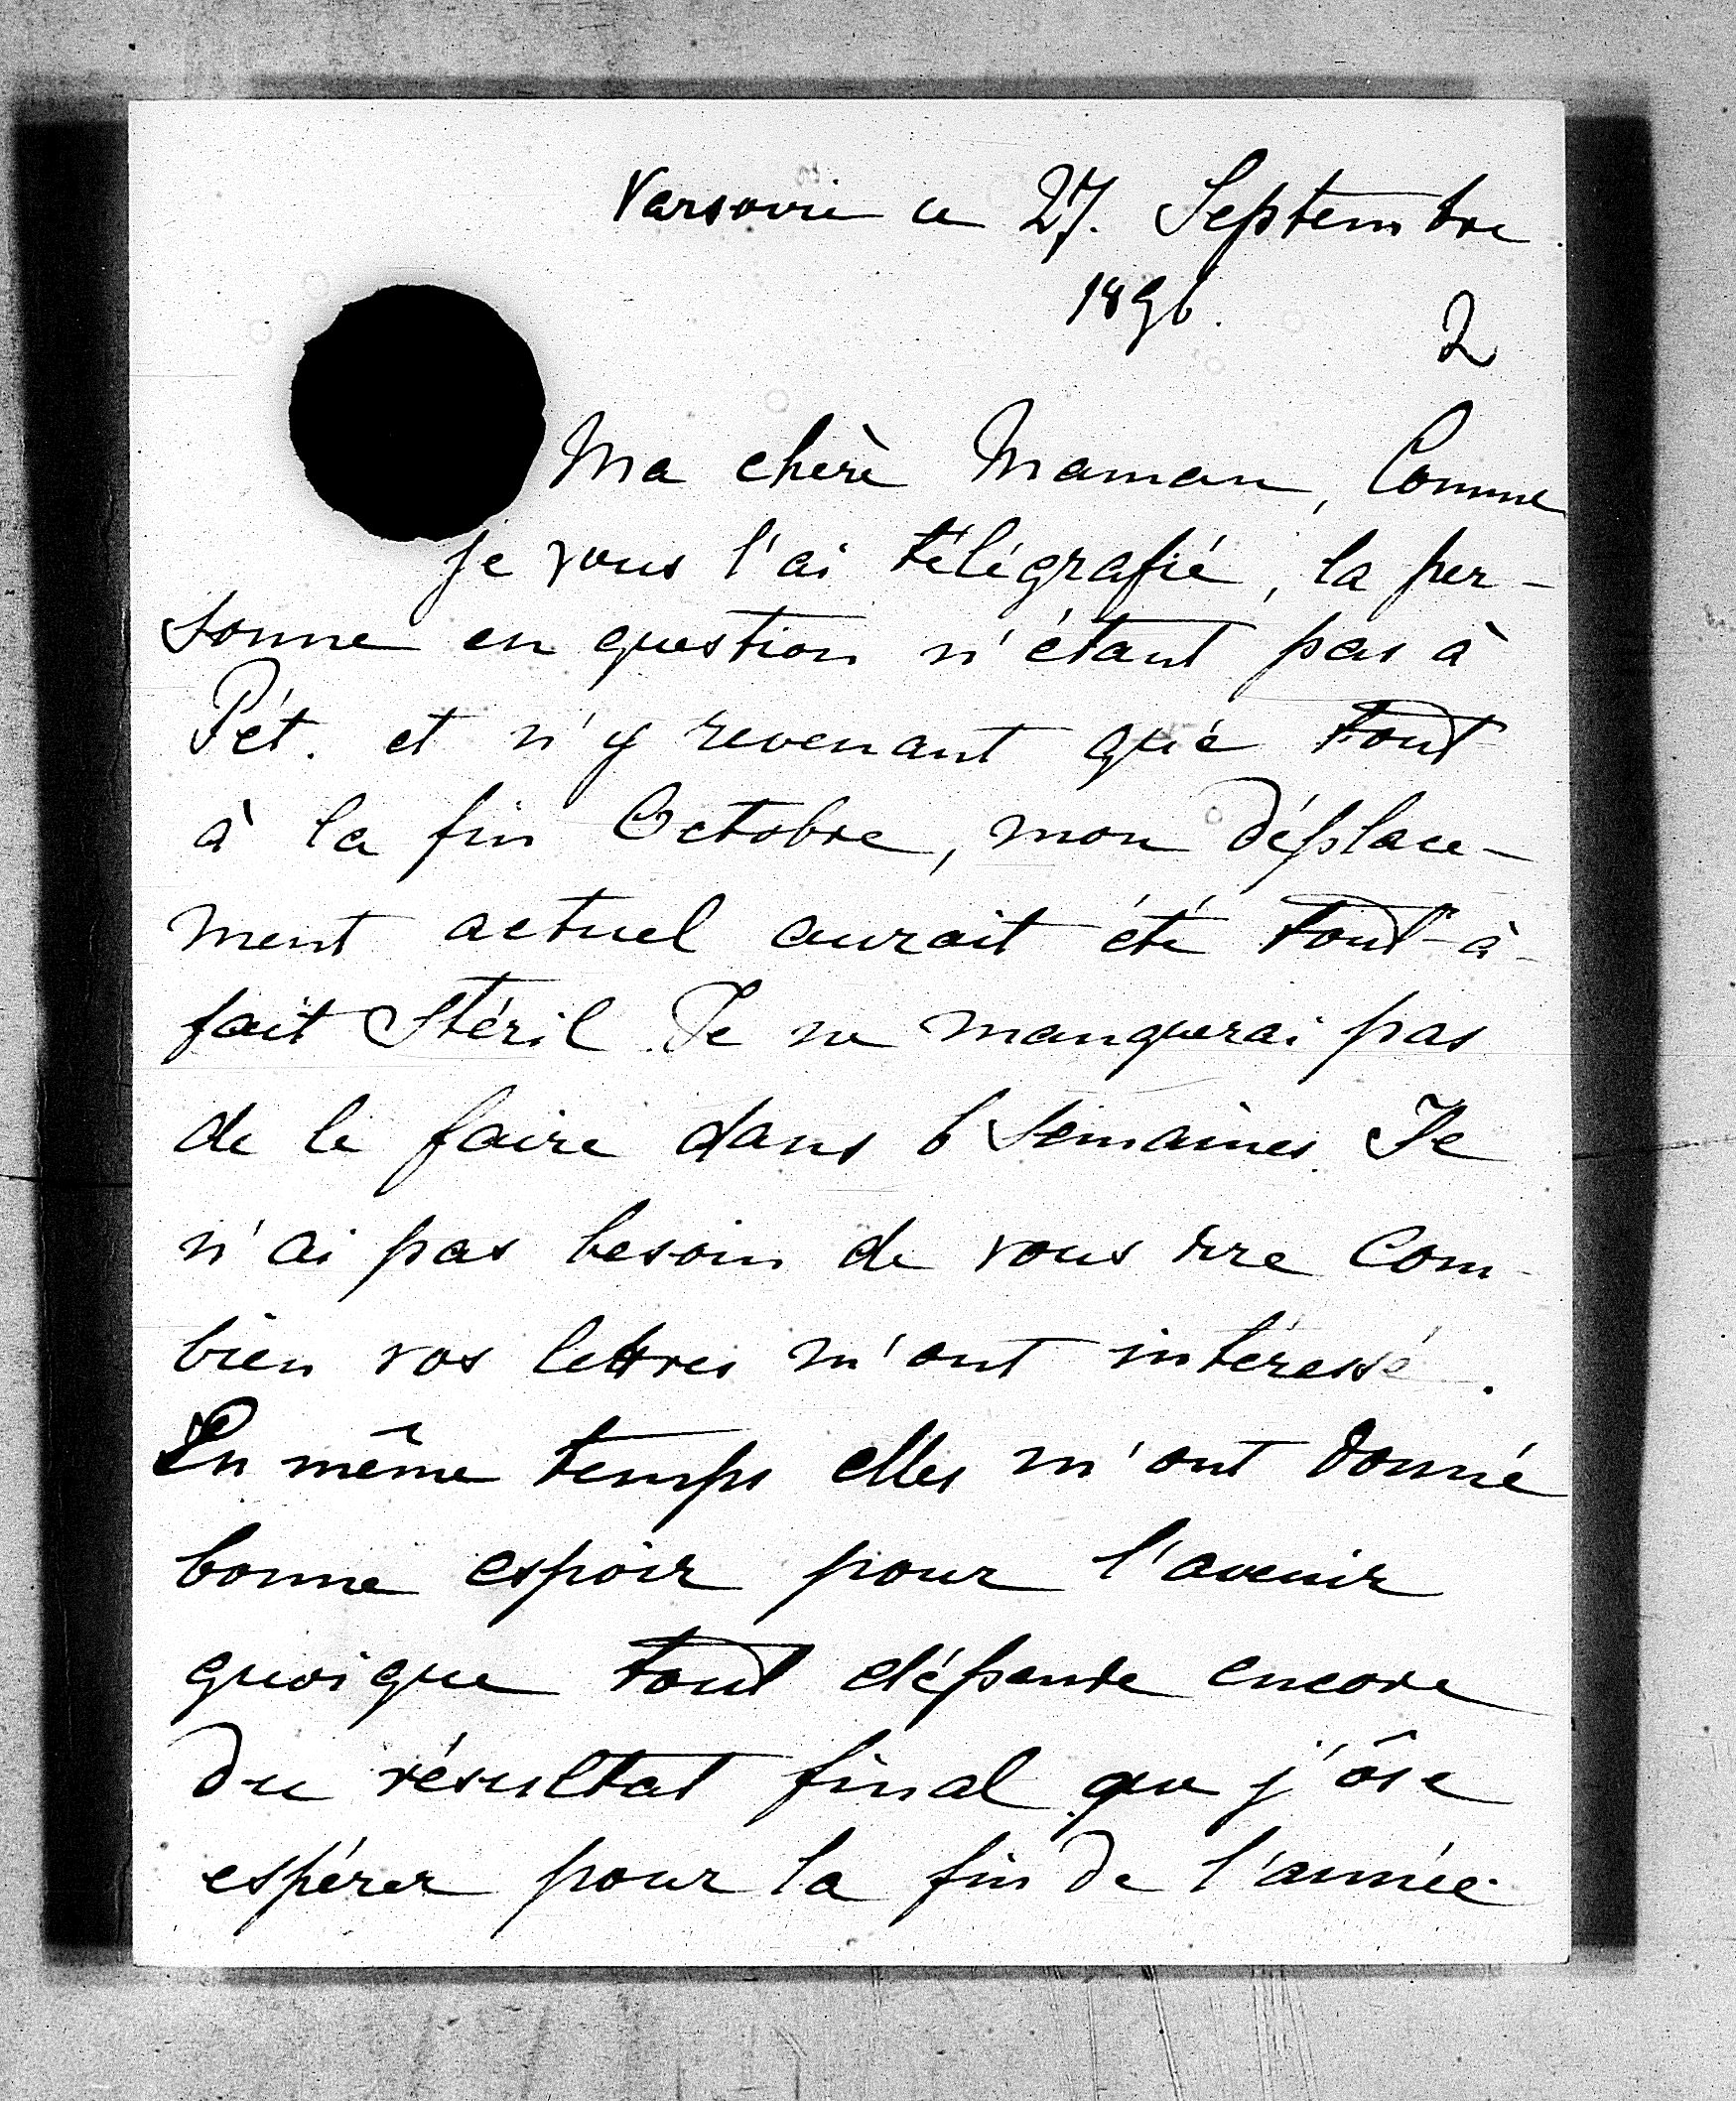 Varsovie ce 27. Septembre
1896.
2
Ma chère Maman, Comme
je vous l'ai télégrafié, la per-
sonne en question n'étant pas à
Pét. et n'y revenant que tout
à la fin Octobre, mon déplace-
ment actuel aurait été tout-à-
fait stéril. Je ne manquerai pas
de le faire dans 6 semaines. Je
n'ai pas besoin de vous dire com-
bien vos lettres m'ont intéressé.
En même temps elles m'ont donné
bonne espoir pour l'avenir
quoique tout dépende encore
du résultat final que j'ôse
espérer pour la fin de l'année.